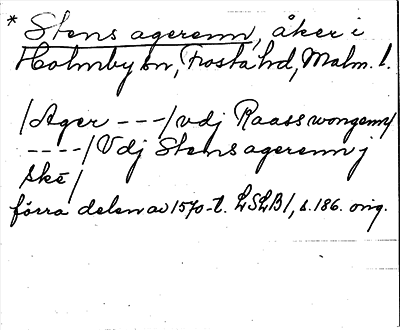 * Stens agerenn, åker i
Holmby sn, Frosta hd, Malm. l.
/Ager ---/ vdj Raass wongenn/
----/ Vdj Stens agerenn j
skē/
förra delen av 1570-t. LSLB1, s. 186. orig.